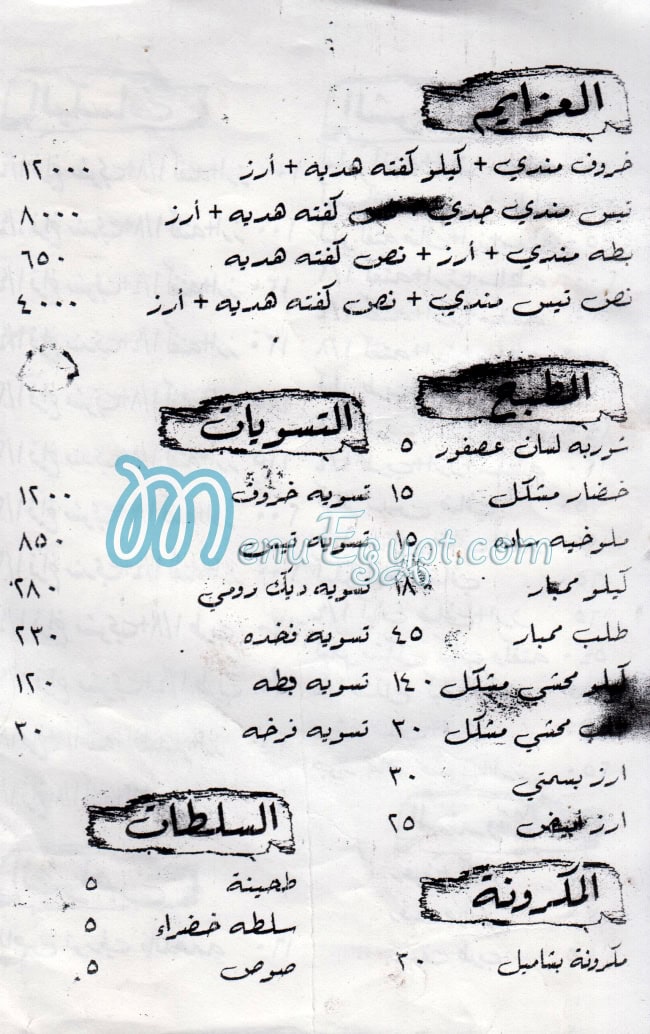 العزايم
خروف مندي + كيلو كفته هديه + أرز ١٢٠٠٠
تيس مندي جدي كفته هديه + أرز ٨٠٠٠
بطه مندي + أرز + نص كفته هديه ٦٥٠
نص تيس مندي + نص كفته هديه + أرز ٤٠٠٠
الطبيخ
شوربه لسان عصفور ٥
خضار مشكل ١٥
ملوخيه ساده ١٥
كيلو ممبار
طلب ممبار ٤٥
كيلو محشي مشكل ١٤٠
طلب محشي مشكل ٣٠
ارز بسمتي ٣٠
ارز ابيض ٢٥
المكرونة
مكرونة بشاميل ٣٠
التسويات
تسويه خروف ١٢٠٠
تسويه تيس ٨٥٠
تسويه ديك رومي ٢٨٠
تسويه فخده ٢٣٠
تسويه بطه ١٢٠
تسويه فرخه ٣٠
السلطات
طحينة ٥
سلطه خضراء ٥
صوص ٥
MenuEgypt.com